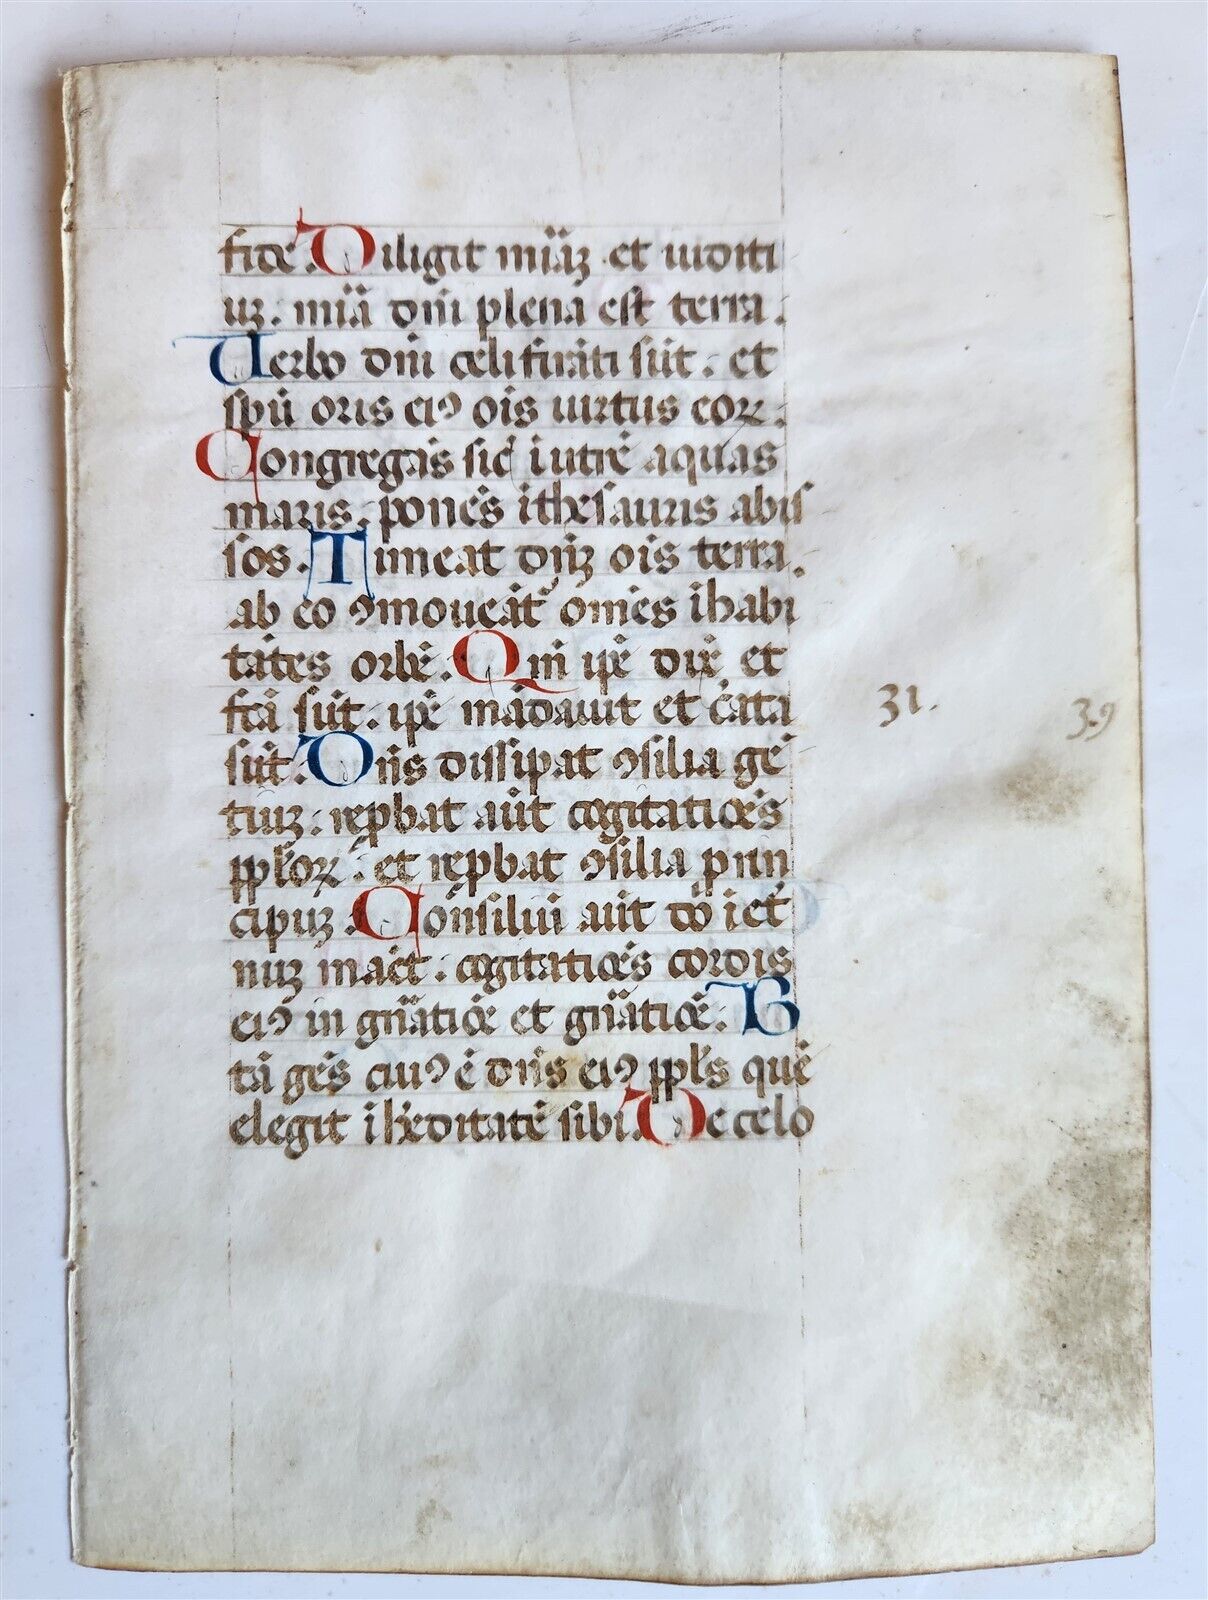 fide. Diligit mı̃aꝫ et iuditi
uꝫ: mı̃a dñi plena est terra.
Uerbo dñi celi firmãti sũt: et
spũ oris eiꝰ oı̃s uirtus eoꝝ.
Congregãs sic̃ ĩ utrẽ aquas
maris: ponẽs ĩ thesauris abis
sos. Timeat dñꝫ oı̃s terra:
ab eo ꝯmoueãt̃ om̃es ĩhabi
tãtes orbẽ. Qm̃ ip̃e dix̃ et
fc̃ã sũt: ip̃e mãdauit et c̃ata
sũt. Dñs dissipat ꝯsilia gẽ
tiuꝫ: rep̃bat aũt cogitatiõẽs
pp̃loꝝ: et rep̃bat ꝯsilia prin
cipuꝫ. Cõnsiliũ aũt dõ i et̃
nuꝫ maẽt: cogitatiõẽs cordis
eiꝰ in gñatiõe et gñatiõe. B
tã gẽs cuiꝰ ẽ dñs eiꝰ pp̃ls quẽ
elegit ĩ h̃editatẽ sibi. De celo
31.
39